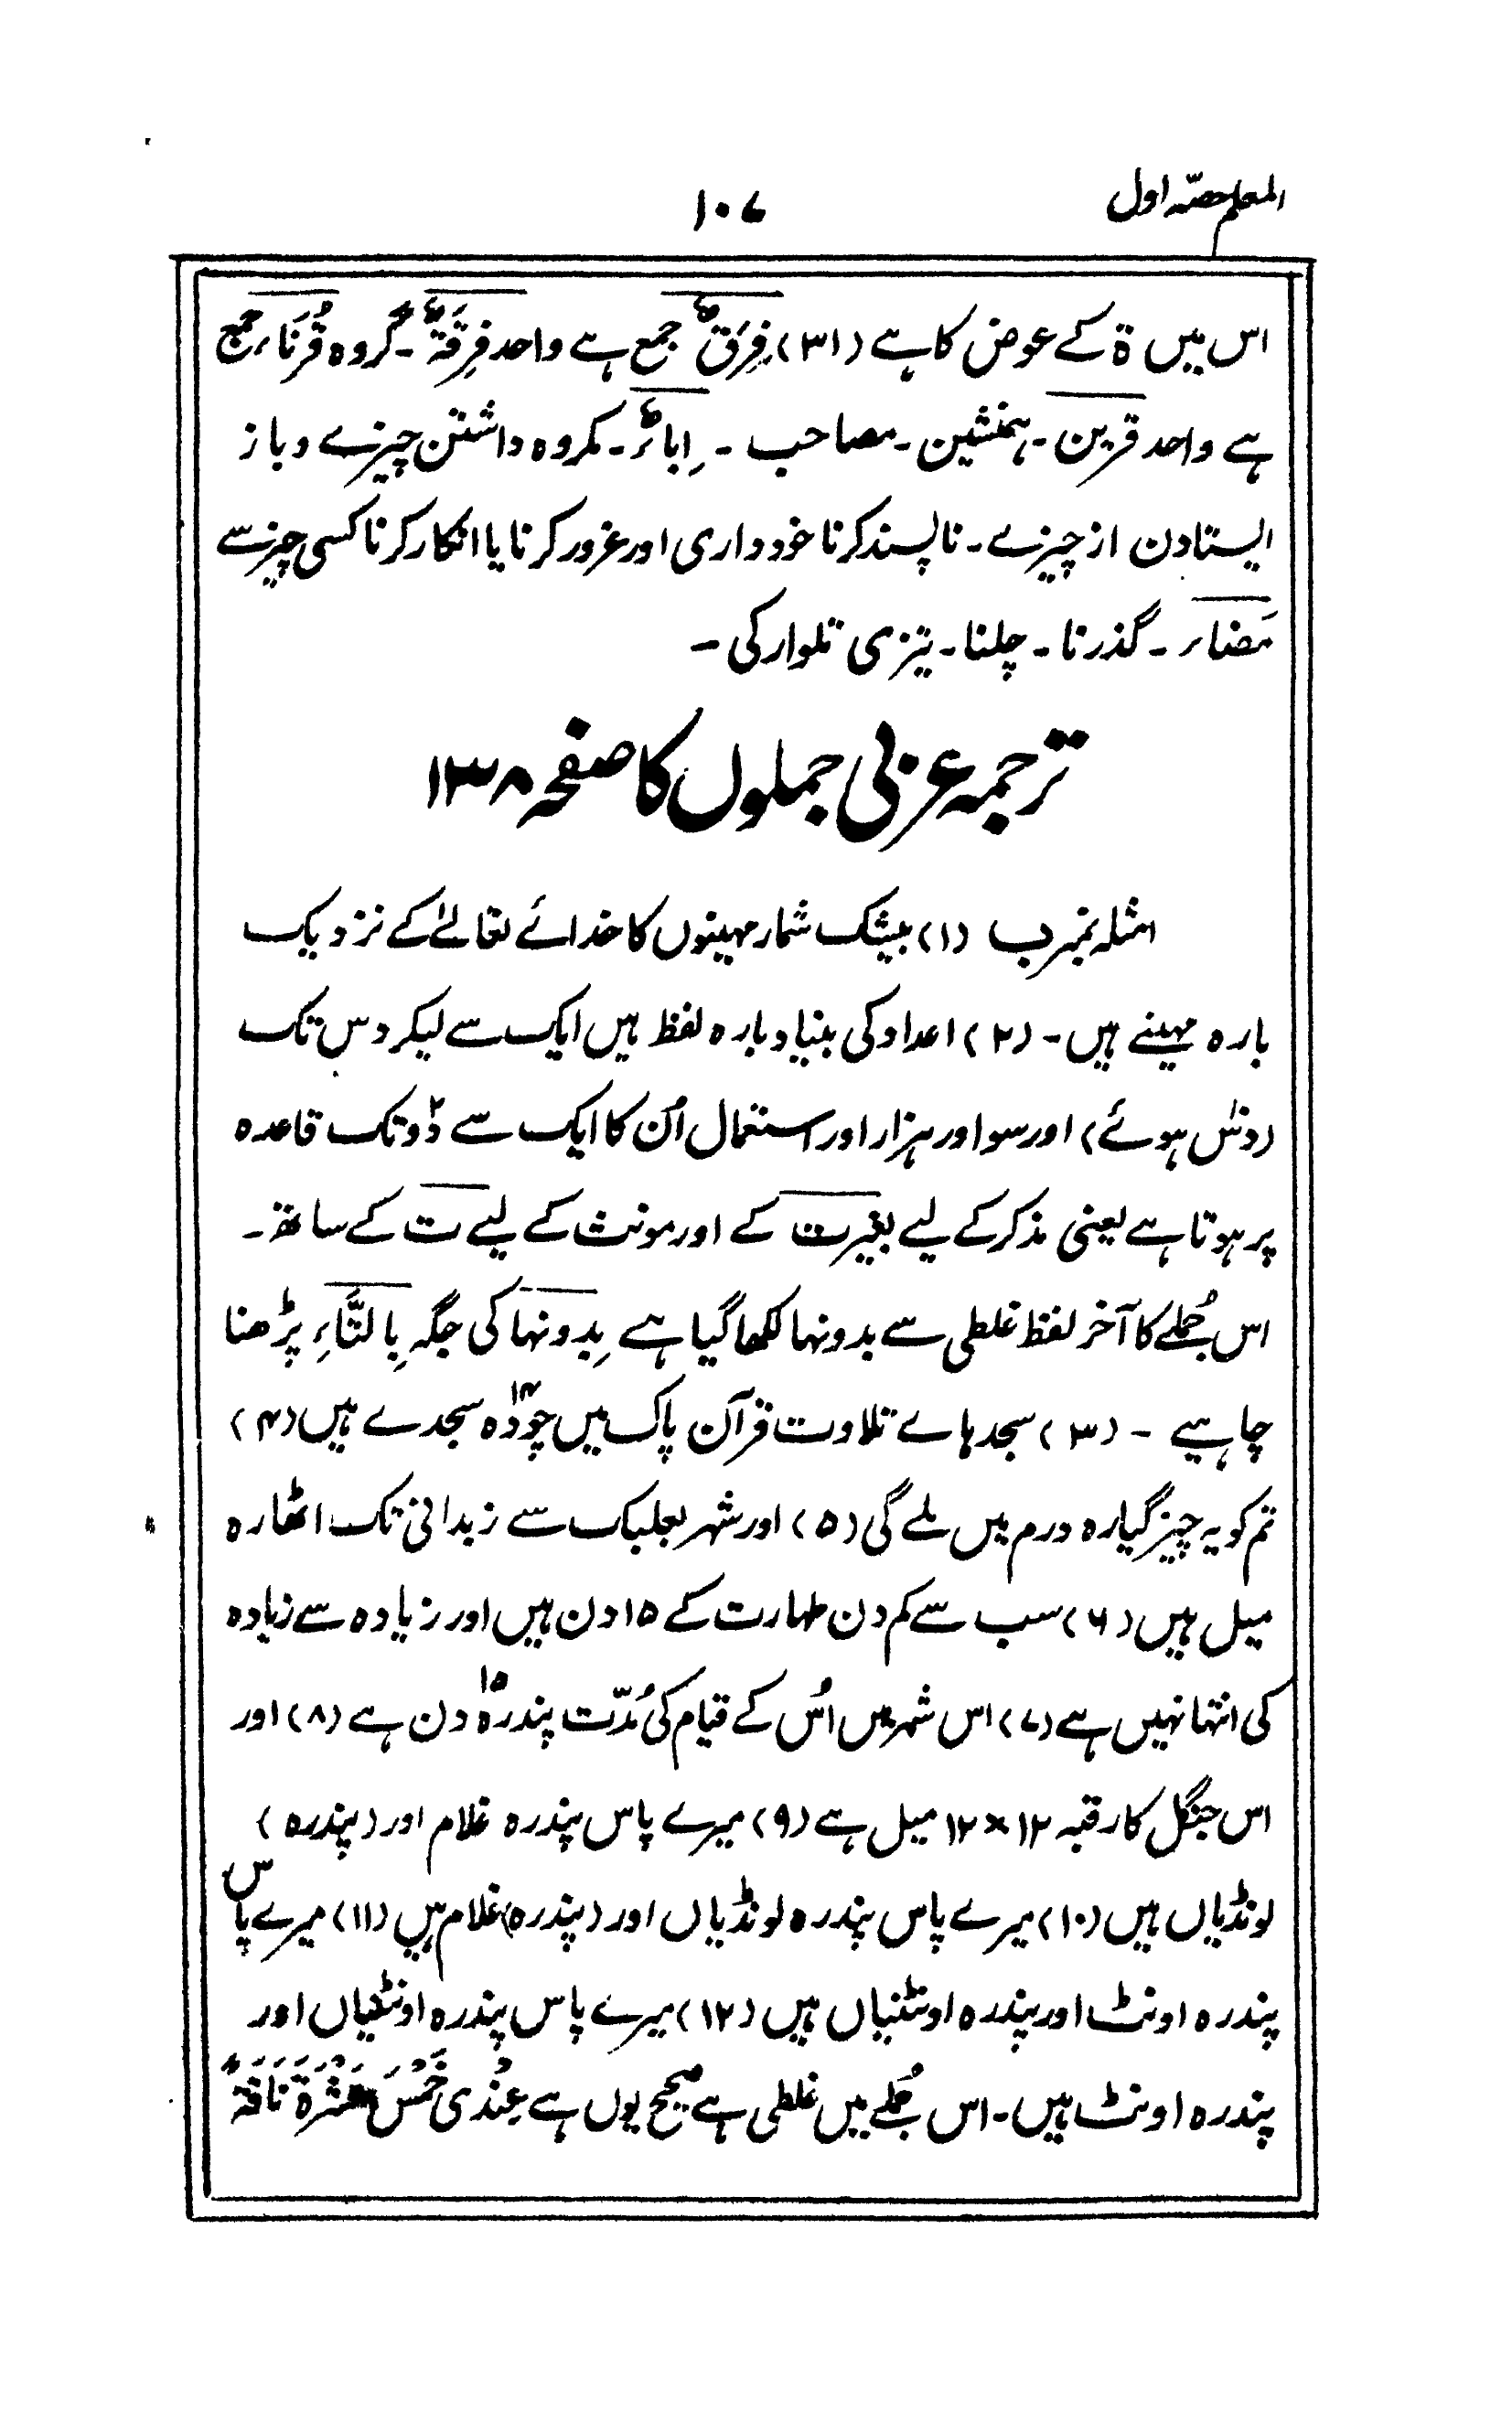 المعلم حصّہ اول
۱۰۷
اس میں ۃ کے عوض کا ہے (۳۱) فِرَقٌ جمع ہے واحد فِرِقَۃٌ ۔ گروہ قُرنَاء جمع
ہے واحد قرین ۔ ہمنشین ۔ مصاحب ۔ اِباءٌ ۔ مکروہ داشتن چیزے و باز
ایستادن از چیزے ۔ ناپسند کرنا خودداری اور غرور کرنا یا انکار کرنا کسی چیز سے
مَضاء ۔ گذرنا ۔ چلنا ۔ تیزی تلوار کی ۔
ترجمہ عربی جملوں کا صفحہ ۱۳۸
امثلہ نمبر ب (۱) بیشک شمار مہینوں کا خدائے تعالےٰ کے نزدیک
بارہ مہینے ہیں ۔ (۲) اعداد کی بنیاد بارہ لفظ ہیں ایک سے لیکر دس تک
(دس ہوئے) اور سو اور ہزار اور استعمال اُن کا ایک سے دٚو تک قاعدہ
پر ہوتا ہے یعنی مذکر کے لیے بغیر ت کے اور مونث کے لیے ت کے ساتھ ۔
اس جُملے کا آخر لفظ غلطی سے بدونہا لکھا گیا ہے بِدونہا کی جگہ بِالتَّاءِ پڑھنا
چاہیے ۔ (۳) سجدہاے تلاوت قرآن پاک میں چودہ۱۴ سجدے ہیں (۴)
تم کو یہ چیز گیارہ درم میں ملے گی (۵) اور شہر بعلبک سے زبدانی تک اٹھارہ
میل ہیں (۶) سب سے کم دن طہارت کے ۱۵ دن ہیں اور زیادہ سے زیادہ
کی انتہا نہیں ہے (۷) اس شہر میں اُس کے قیام کی مُدّت پندرہ۱۵ دن ہے (۸) اور
اس جنگل کا رقبہ ۱۲×۱۲ میل ہے (۹) میرے پاس پندرہ غلام اور (پندرہ)
لونڈیاں ہیں (۱۰) میرے پاس پندرہ لونڈیاں اور (پندرہ) غلام ہیں (۱۱) میرے پاس
پندرہ اونٹ اور پندرہ اونٹنیاں ہیں (۱۲) میرے پاس پندرہ اونٹنیاں اور
پندرہ اونٹ ہیں ۔ اس جُملے میں غلطی ہے صحیح یوں ہے عِنْدی خَمْسَ عَشْرَۃَ نَاقَۃً